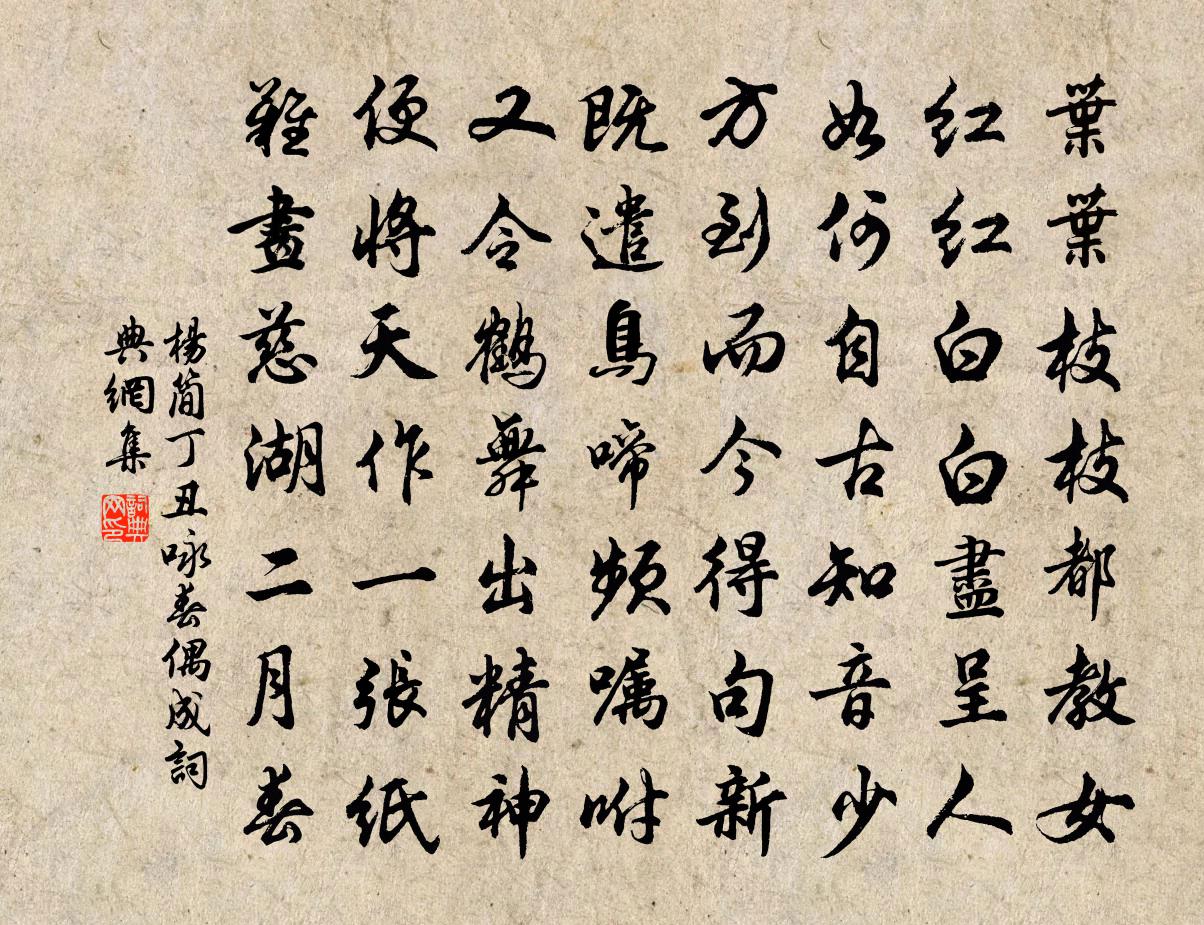 葉葉枝枝都教女
紅紅白白盡呈人
如何自古知音少
方到而今得句新
既遣鳥啼頻嘱咐
又令鶴舞出精神
便將天作一張紙
難畫慈湖二月春
楊简丁丑咏春偶成詞
典網集
詞典網印